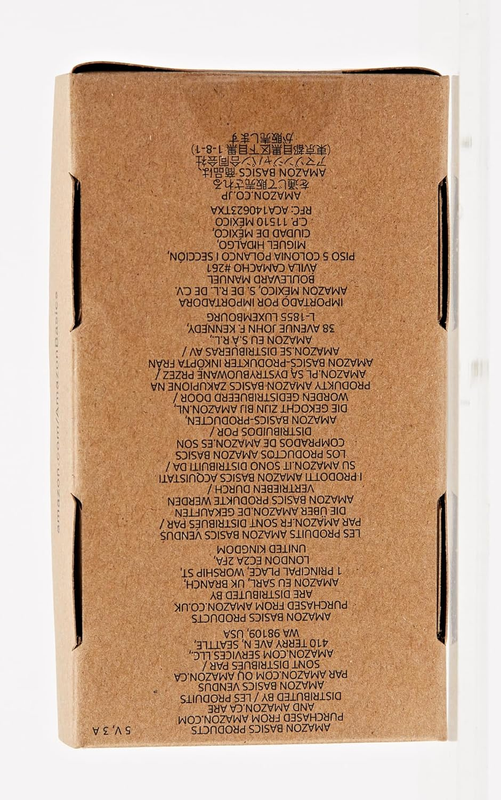 AMAZON BASICS PRODUCTS
PURCHASED FROM AMAZON.COM
AND AMAZON.CA ARE
DISTRIBUTED BY / LES PRODUITS
AMAZON BASICS VENDUS
PAR AMAZON.COM OU AMAZON.CA
SONT DISTRIBUÉS PAR /
AMAZON.COM SERVICES, LLC.,
410 TERRY AVE. N, SEATTLE,
WA 98109, USA
AMAZON BASICS PRODUCTS
PURCHASED FROM AMAZON.CO.UK
ARE DISTRIBUTED BY
AMAZON EU SARL, UK BRANCH,
1 PRINCIPAL PLACE, WORSHIP ST,
LONDON EC2A 2FA,
UNITED KINGDOM
LES PRODUITS AMAZON BASICS VENDUS
PAR AMAZON.FR SONT DISTRIBUÉS PAR /
DIE ÜBER AMAZON.DE GEKAUFTEN
AMAZON BASICS PRODUKTE WERDEN
VERTRIEBEN DURCH /
I PRODOTTI AMAZON BASICS ACQUISTATI
SU AMAZON.IT SONO DISTRIBUITI DA /
LOS PRODUCTOS AMAZON BASICS
COMPRADOS DE AMAZON.ES SON
DISTRIBUIDOS POR /
AMAZON BASICS-PRODUCTEN,
DIE GEKOCHT ZIJN BIJ AMAZON.NL
WORDEN GEDISTRIBUEERD DOOR /
PRODUKTY AMAZON BASICS ZAKUPIONE NA
AMAZON.PL SĄ DYSTRYBUOWANE PRZEZ /
AMAZON BASICS-PRODUKTER INKÖPTA FRÅN
AMAZON.SE DISTRIBUERAS AV /
AMAZON EU S.A R.L.
38 AVENUE JOHN F. KENNEDY,
L-1855 LUXEMBOURG
IMPORTADO POR IMPORTADORA
AMAZON MÉXICO, S. DE R.L. DE C.V.
BOULEVARD MANUEL
AVILA CAMACHO #261
PISO 5 COLONIA POLANCO I SECCIÓN,
MIGUEL HIDALGO,
CIUDAD DE MÉXICO,
C.P. 11510 MÉXICO
RFC: ACA140623TXA
AMAZON.CO.JP
を通じて販売される
AMAZON BASICS 商品は
アマゾンジャパン合同会社
(東京都目黒区下目黒 1-8-1)
が販売します
5V, 3 A
amazon.com/AmazonBasics